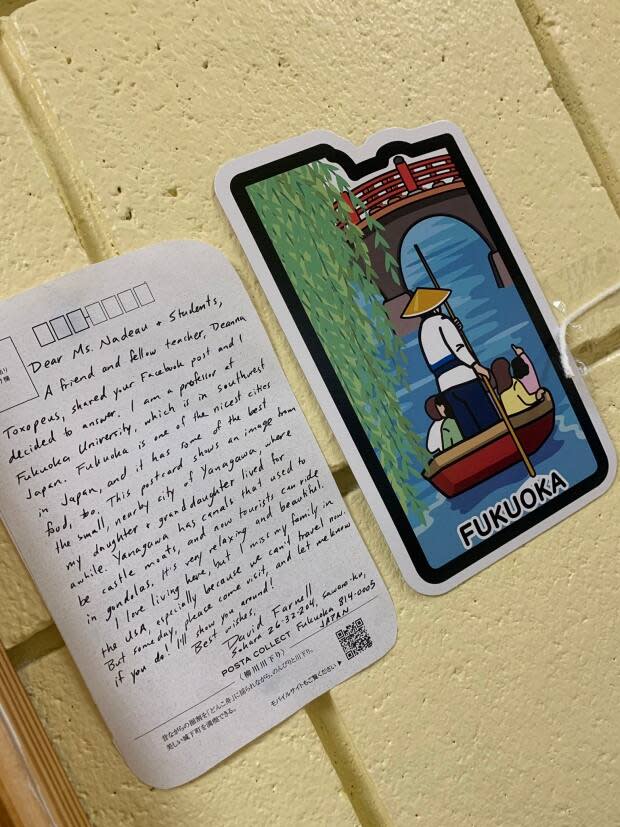 Dear Ms. Nadeau + Students,
A friend and fellow teacher, Deanna
Toxopeus, shared your Facebook post and I
decided to answer. I am a professor at
Fukuoka University, which is in southwest
Japan. Fukuoka is one of the nicest cities
in Japan, and it has some of the best
food, too. This postcard shows an image from
the small, nearby city of Yanagawa, where
my daughter + granddaughter lived for
awhile. Yanagawa has canals that used to
be castle moats, and now tourists can ride
in gondolas. It's very relaxing and beautiful.
I love living here, but I miss my family in
the USA, especially because we can't travel now.
But someday, please come visit, and let me know
if you do! I'll show you around!
Best wishes,
David Farnell
Sohara 26-32-204, Sawara-ku,
Fukuoka 814-0005
JAPAN
POSTA COLLECT
(柳川川下り)
昔ながらの風情を「どんこ舟」に揺られながら、のんびりと川下り。
美しい城下町を満喫できる。
モバイルサイトもご覧ください▶
FUKUOKA